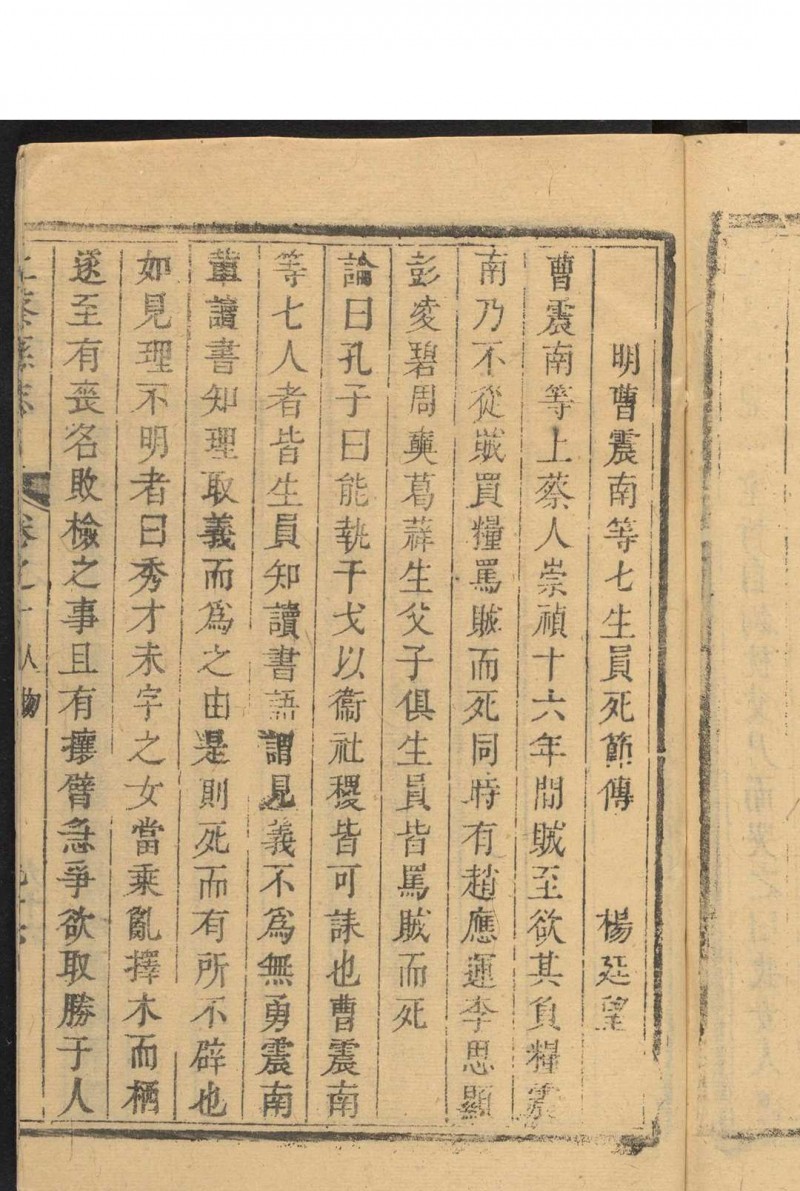 明曹震南等七生員死節傳 楊廷望
曹震南等上蔡人崇禎十六年間賊至欲其負糧震
南乃不從賊買糧罵賊而死同時有趙應運李思顯
彭夌碧周奭葛薜生父子俱生員皆罵賊而死
論曰孔子曰能執干戈以衞社稷皆可誄也曹震南
等七人者皆生員知讀書語謂見義不為無勇震南
輩讀書知理取義而為之由是則死而有所不辟也
如見理不明者曰秀才未字之女當乘亂擇木而栖
遂至有喪名敗檢之事且有攘臂急爭欲取勝于人
上蔡縣志 卷之十 人物